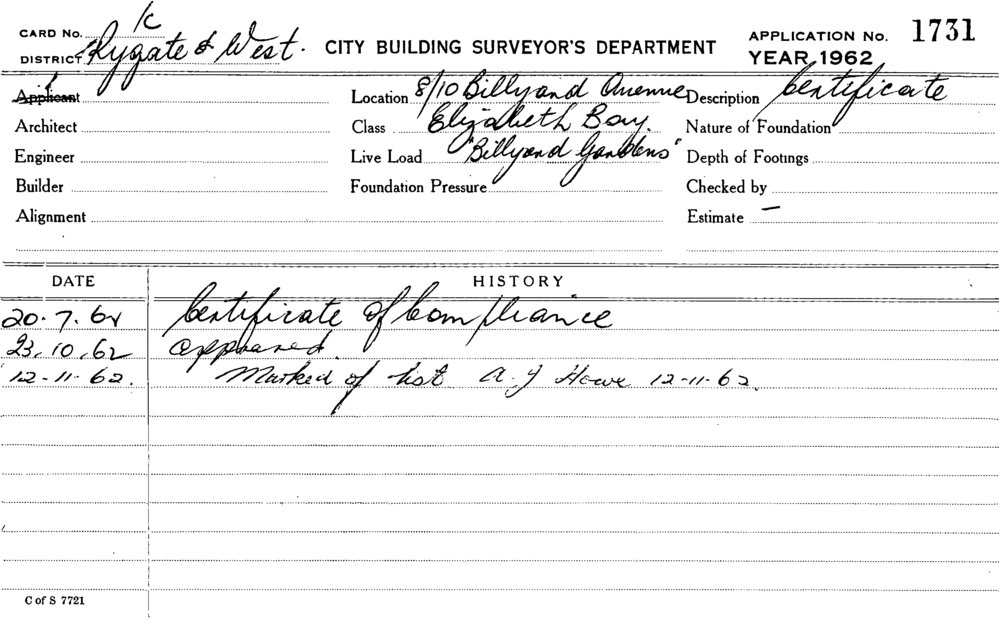 CARD No. 1c
DISTRICT Rygate & West.
CITY BUILDING SURVEYOR'S DEPARTMENT
APPLICATION No. 1731
YEAR 1962
Applicant
Location 8/10 Billyard Avenue
Description Certificate
Architect
Class Elizabeth Bay.
Nature of Foundation
Engineer
Live Load "Billyard Gardens"
Depth of Footings
Builder
Foundation Pressure
Checked by
Alignment
Estimate —
DATE HISTORY
20.7.62 Certificate of Compliance
23.10.62 approved.
12-11-62. Marked of list A. J Howe 12-11-62.
C of S 7721